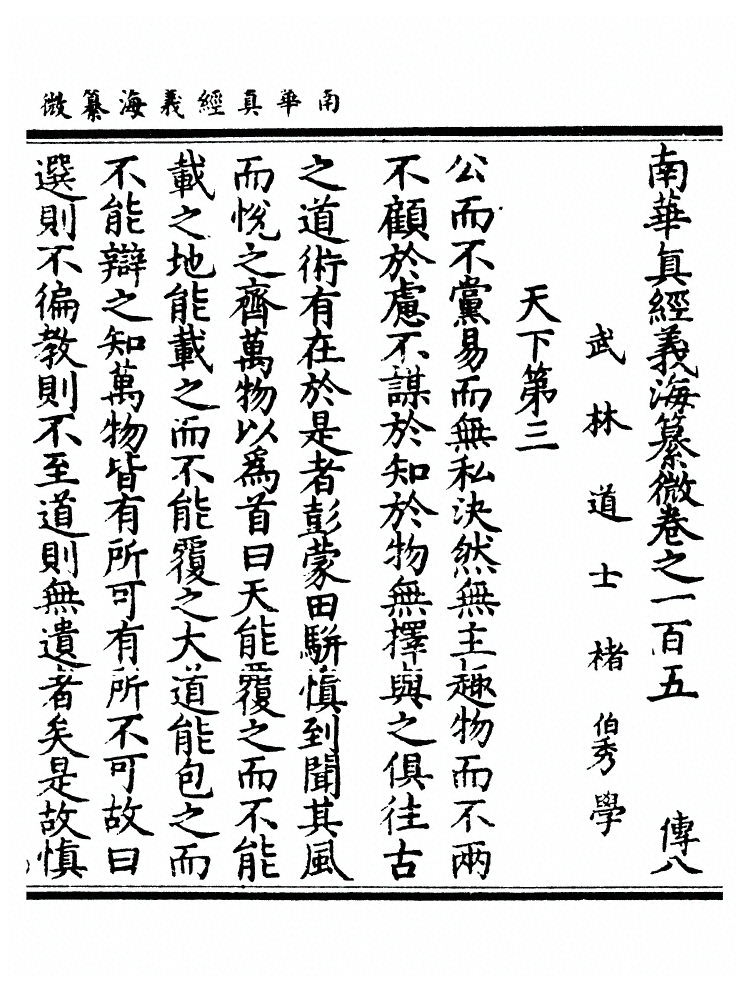 南華真經義海纂微
南華真經義海纂微卷之一百五　傳八
武林道士褚伯秀學
天下第三
公而不黨易而無私決然無主趣物而不兩
不顧於慮不謀於知於物無擇與之俱往古
之道術有在於是者彭蒙田駢慎到聞其風
而悅之齊萬物以為首曰天能覆之而不能
載之地能載之而不能覆之大道能包之而
不能辯之知萬物皆有所可有所不可故曰
選則不徧教則不至道則無遺者矣是故慎